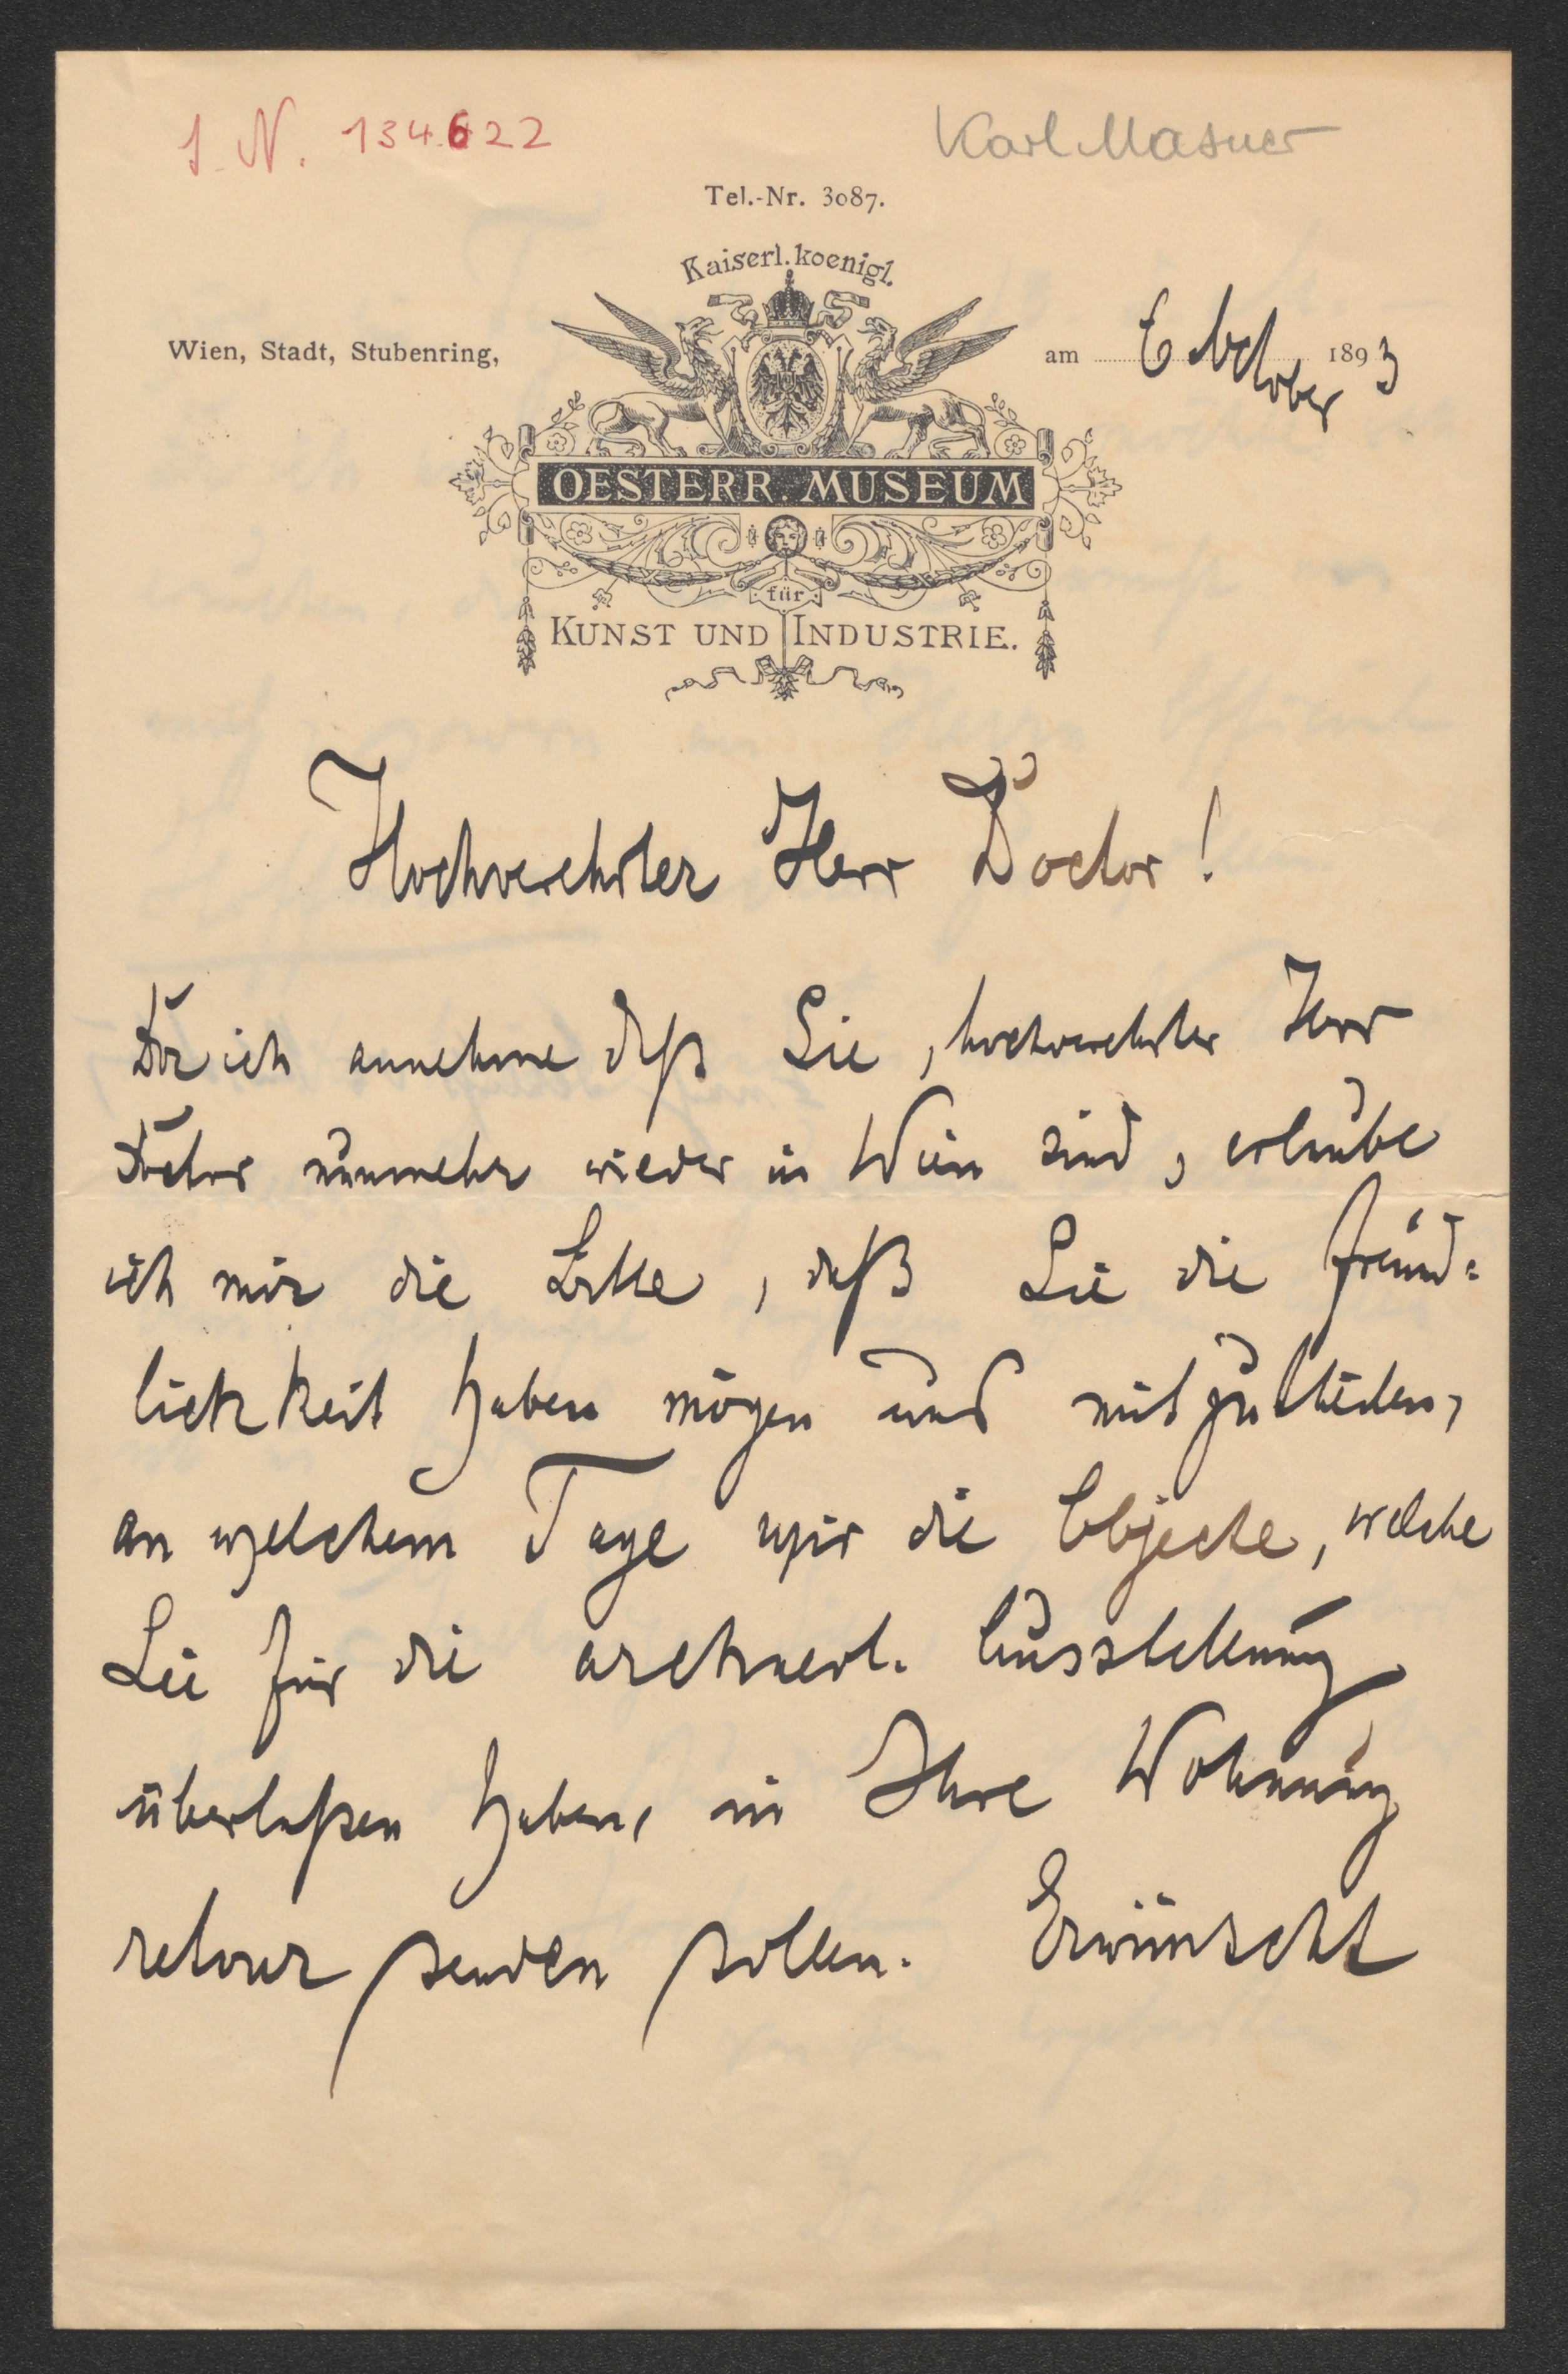 I. N. 134.622
Karl Masner
Tel.-Nr. 3087.
Kaiserl. koenigl.
Wien, Stadt, Stubenring,
am 6 October 1893
OESTERR. MUSEUM
für
KUNST UND INDUSTRIE.
Hochverehrter Herr Doctor!
Da ich annehme daß Sie, hochverehrter Herr
Doctor nunmehr wieder in Wien sind, erlaube
ich mir die Bitte, daß Sie die Freund=
lichkeit haben mögen uns mitzutheilen,
an welchem Tage wir die Objecte, welche
Sie für die archaeol. Ausstellung
überlaßen haben, in Ihre Wohnung
retour senden sollen. Erwünscht